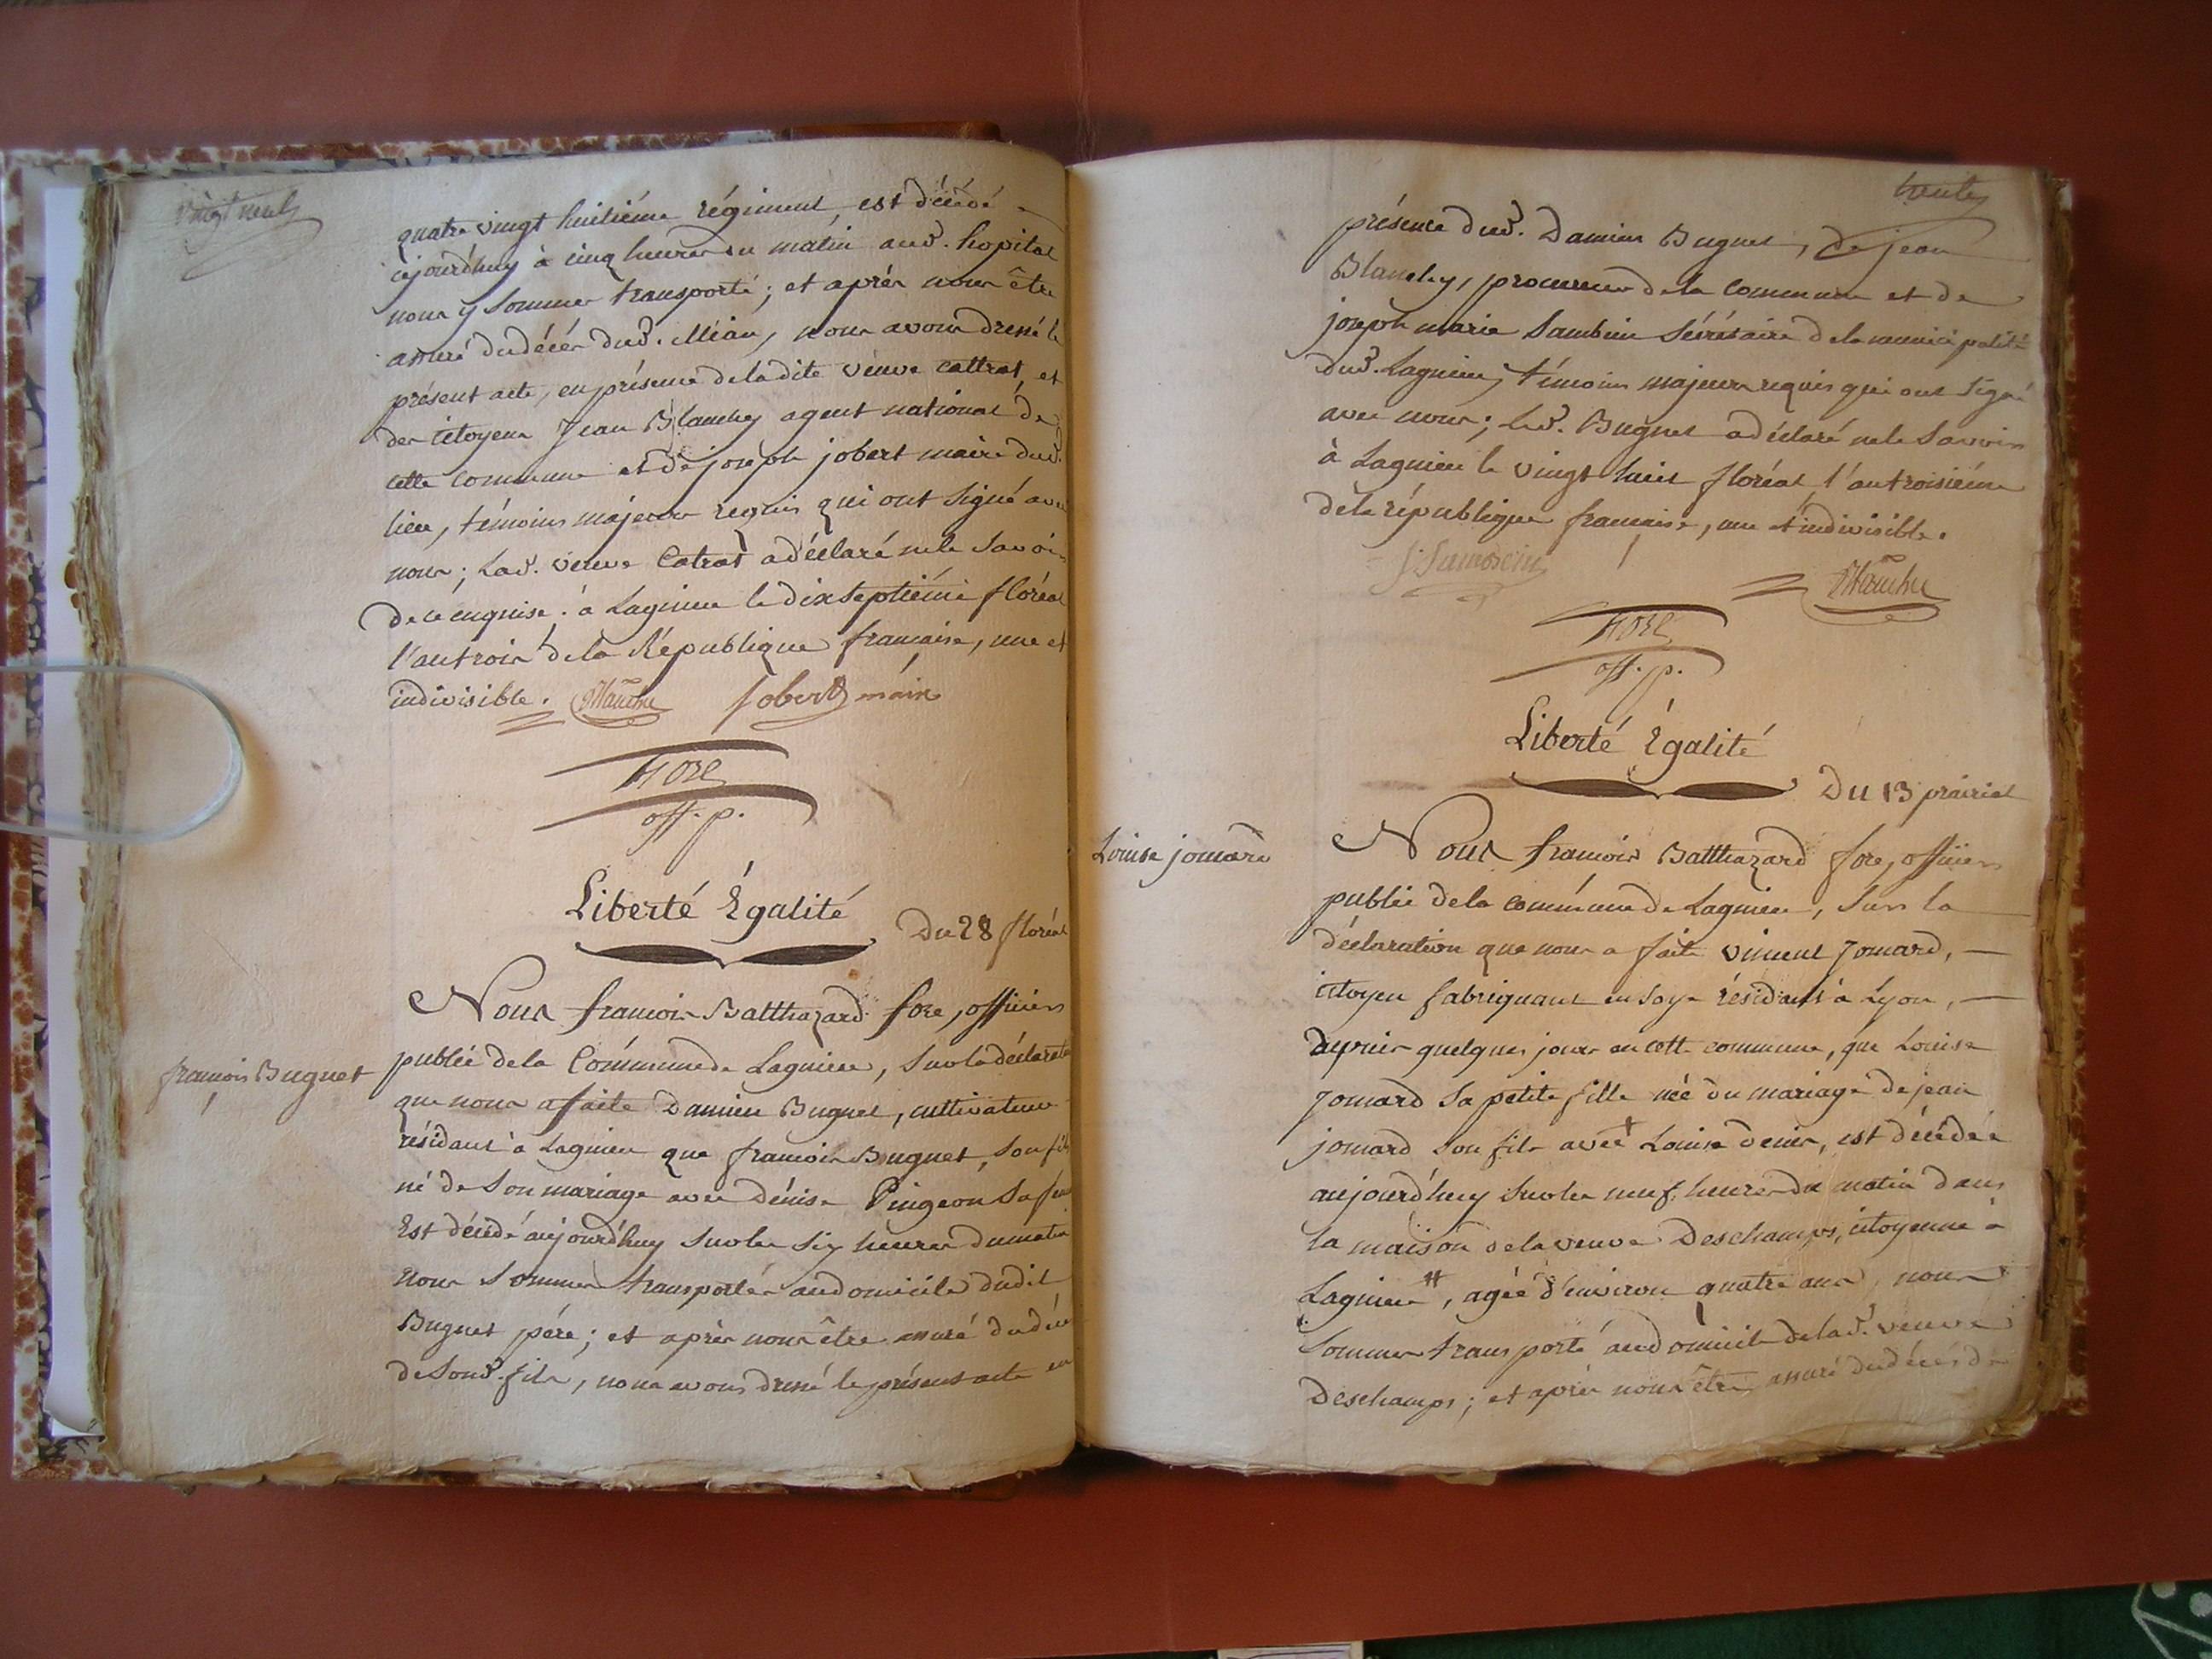 vingt neuf
quatre vingt huitiéme régiment, est décédé
cejourd'huy à cinq heures du matin aud. hopital
nous y sommes transporté; et après nous être
assuré du décès dud. Méan, nous avons dressé le
présent acte, en présence de la dite veuve cattrat, et
des citoyens Jean Blanchy agent national de
cette commune et de joseph jobert maire dud.
lieu, témoins majeurs requis qui ont signé avec
nous; lad. veuve Catrat a déclaré ne le savoir
de ce enquise. à Lagnieu le dix septiéme floréal
l'an trois de la République francaise, une et
indivisible. Blanchy jobert maire
fore
off. p.
Liberté Égalité
Du 28 floréal
françois Buguet
Nous francois Balthazard fore, officier
public de la Commune de Lagnieu, sur la déclaration
que nous a faite Damien Buguet, cultivateur
résidant à Lagnieu que francois Buguet, son fils
né de son mariage avec Dénise Pingeon sa fem
Est décédé aujourd'huy sur les six heures du matin
nous sommes transportés au domicile dudit
Buguet pére; et après nous être assuré du décè
de sond. fils, nous avons dressé le présent acte en
trente
présence dud. Damien Buguet, de jean
Blanchy, procureur de la commune et de
joseph marie Sambin sécrétaire de la municipalité
dud. Lagnieu, témoins majeurs requis qui ont signé
avec nous; led. Buguet a déclaré ne le savoir
à Lagnieu le vingt huit floréal l'an troisiéme
de la république francaise, une et indivisible.
Blanchy
fore
off. p.
Liberté Égalité
Du 13 prairial
Louise jomard
Nous francois Balthazard fore, officier
public de la commune de Lagnieu, sur la
déclaration que nous a faite vincent Jomard,
citoyen fabriquant en soye résidant à Lyon,
depuis quelques jours en cette commune, que Louise
Jomard sa petite fille née du mariage de jean
jomard son fils avec Louise Denis, est décédée
aujourd'huy sur les neuf heures du matin dans
la maison de la veuve Deschamps, citoyenne à
Lagnieu, agée d'environ quatre ans, nous
sommes transporté au domicile de lad. veuve
Deschamps; et après nous être assuré du décès de